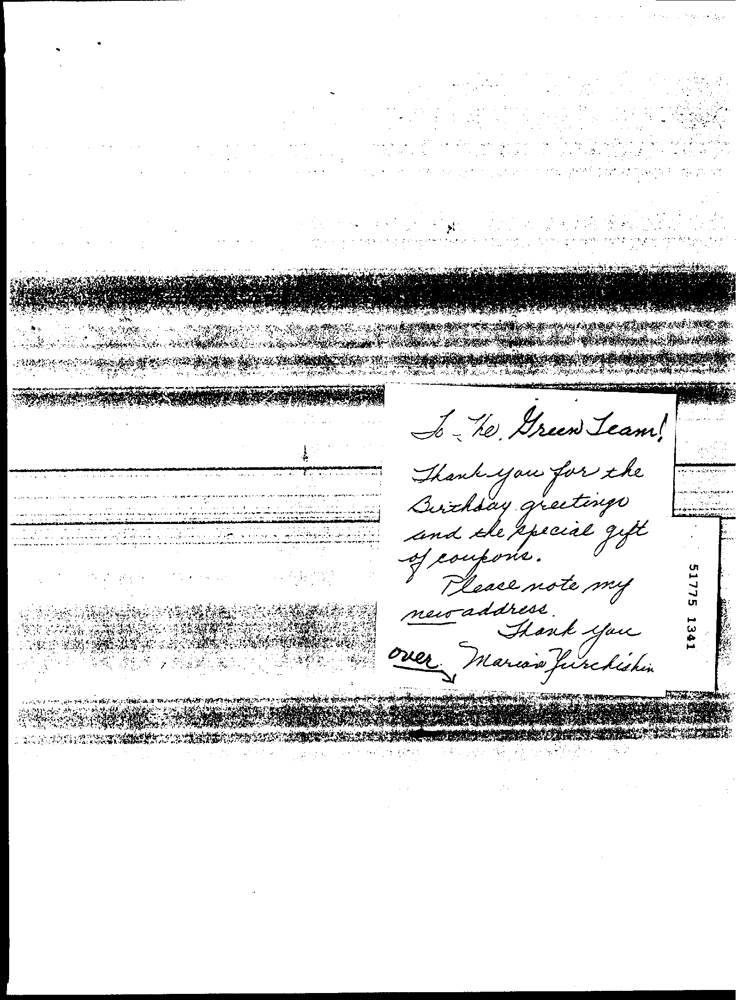 To The Green Team!
Thank you for the
Birthday greetings
and the special gift
of coupons.
Please note my
new address.
Thank you
over Marion Yurchishin
51775 1341